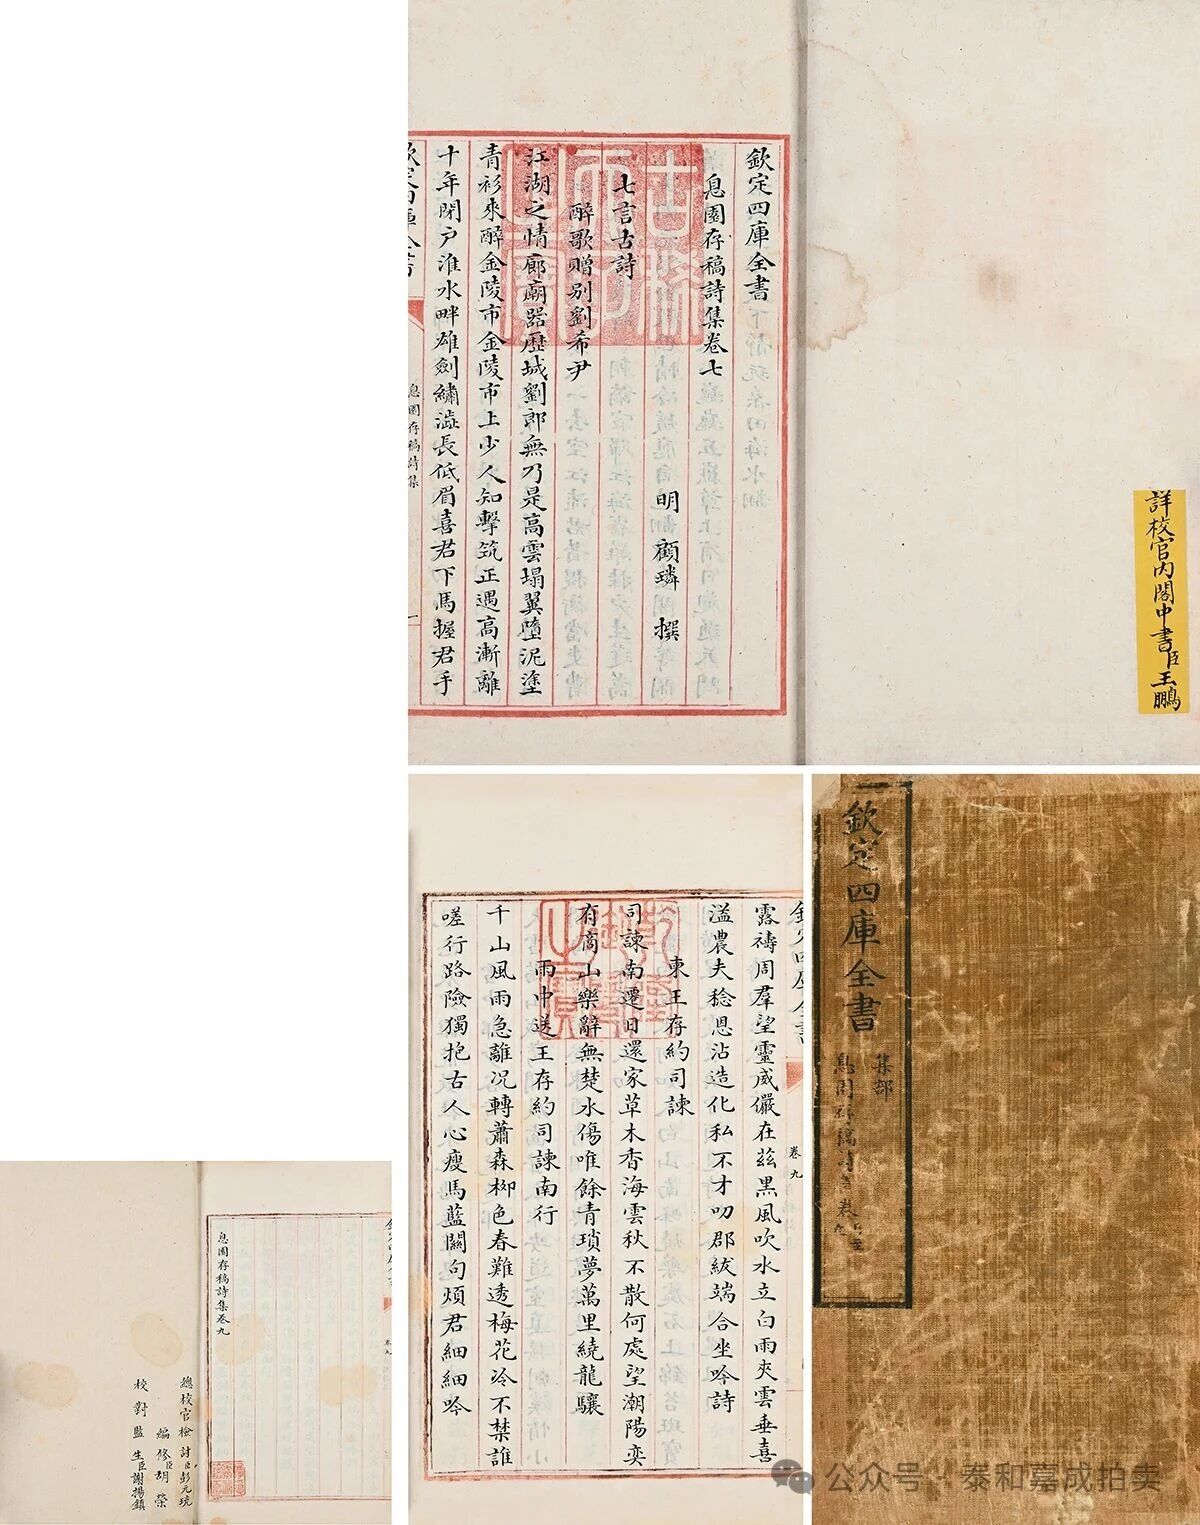 欽定四庫全書
息園存稿詩集卷七
明 顧璘 撰
七言古詩
醉歌贈別劉希尹
江湖之情廊廟器歷城劉郎無乃是高雲塌翼墮泥塗
青衫來醉金陵市金陵市上少人知擊筑正遇高漸離
十年閉戶淮水畔雄劍繡澁長低眉喜君下馬握君手
欽定四庫全書
息園存稿詩集
詳校官內閣中書臣王鵬
欽定四庫全書
卷九
露禱周羣望靈威儼在茲黑風吹水立白雨夾雲垂喜
溢農夫稔恩沾造化私不才叨郡紱端合坐吟詩
東王存約司諫
司諫南遷日還家草木香海雲秋不散何處望潮陽奕
有商山樂辭無楚水傷唯餘青瑣夢萬里繞龍驤
雨中送王存約司諫南行
千山風雨急離況轉蕭森柳色春難透梅花冷不禁誰
嗟行路險獨抱古人心瘦馬藍關句煩君細細吟
乾隆御覽之寶
欽定四庫全書
集部
息園存稿詩集卷
欽定四庫全書
卷九
息園存稿詩集卷九
總校官檢討臣彭元珫
編修臣胡榮
校對監生臣謝揚鎮
公众号 泰和嘉成拍卖